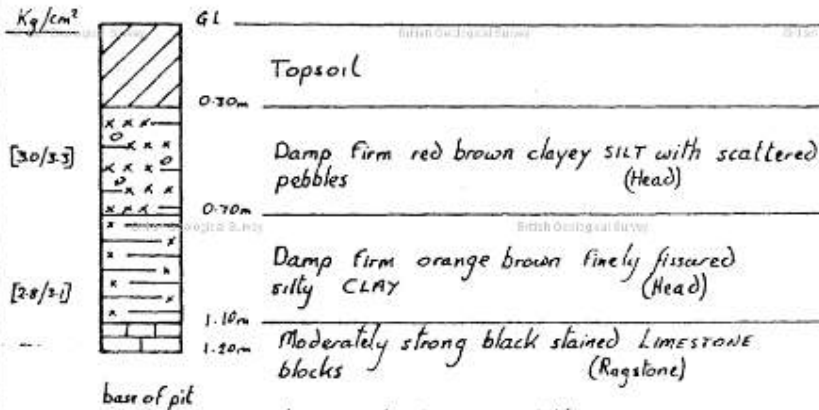 Kg/cm²
GL
British Geological Survey
Topsoil
0.30m
[3.0/3.3]
Damp firm red brown clayey SILT with scattered
pebbles (Head)
0.70m
British Geological Survey
Damp firm orange brown finely fissured
silty CLAY (Head)
[2.8/3.1]
1.10m
1.20m
Moderately strong black stained LIMESTONE
blocks (Ragstone)
base of pit